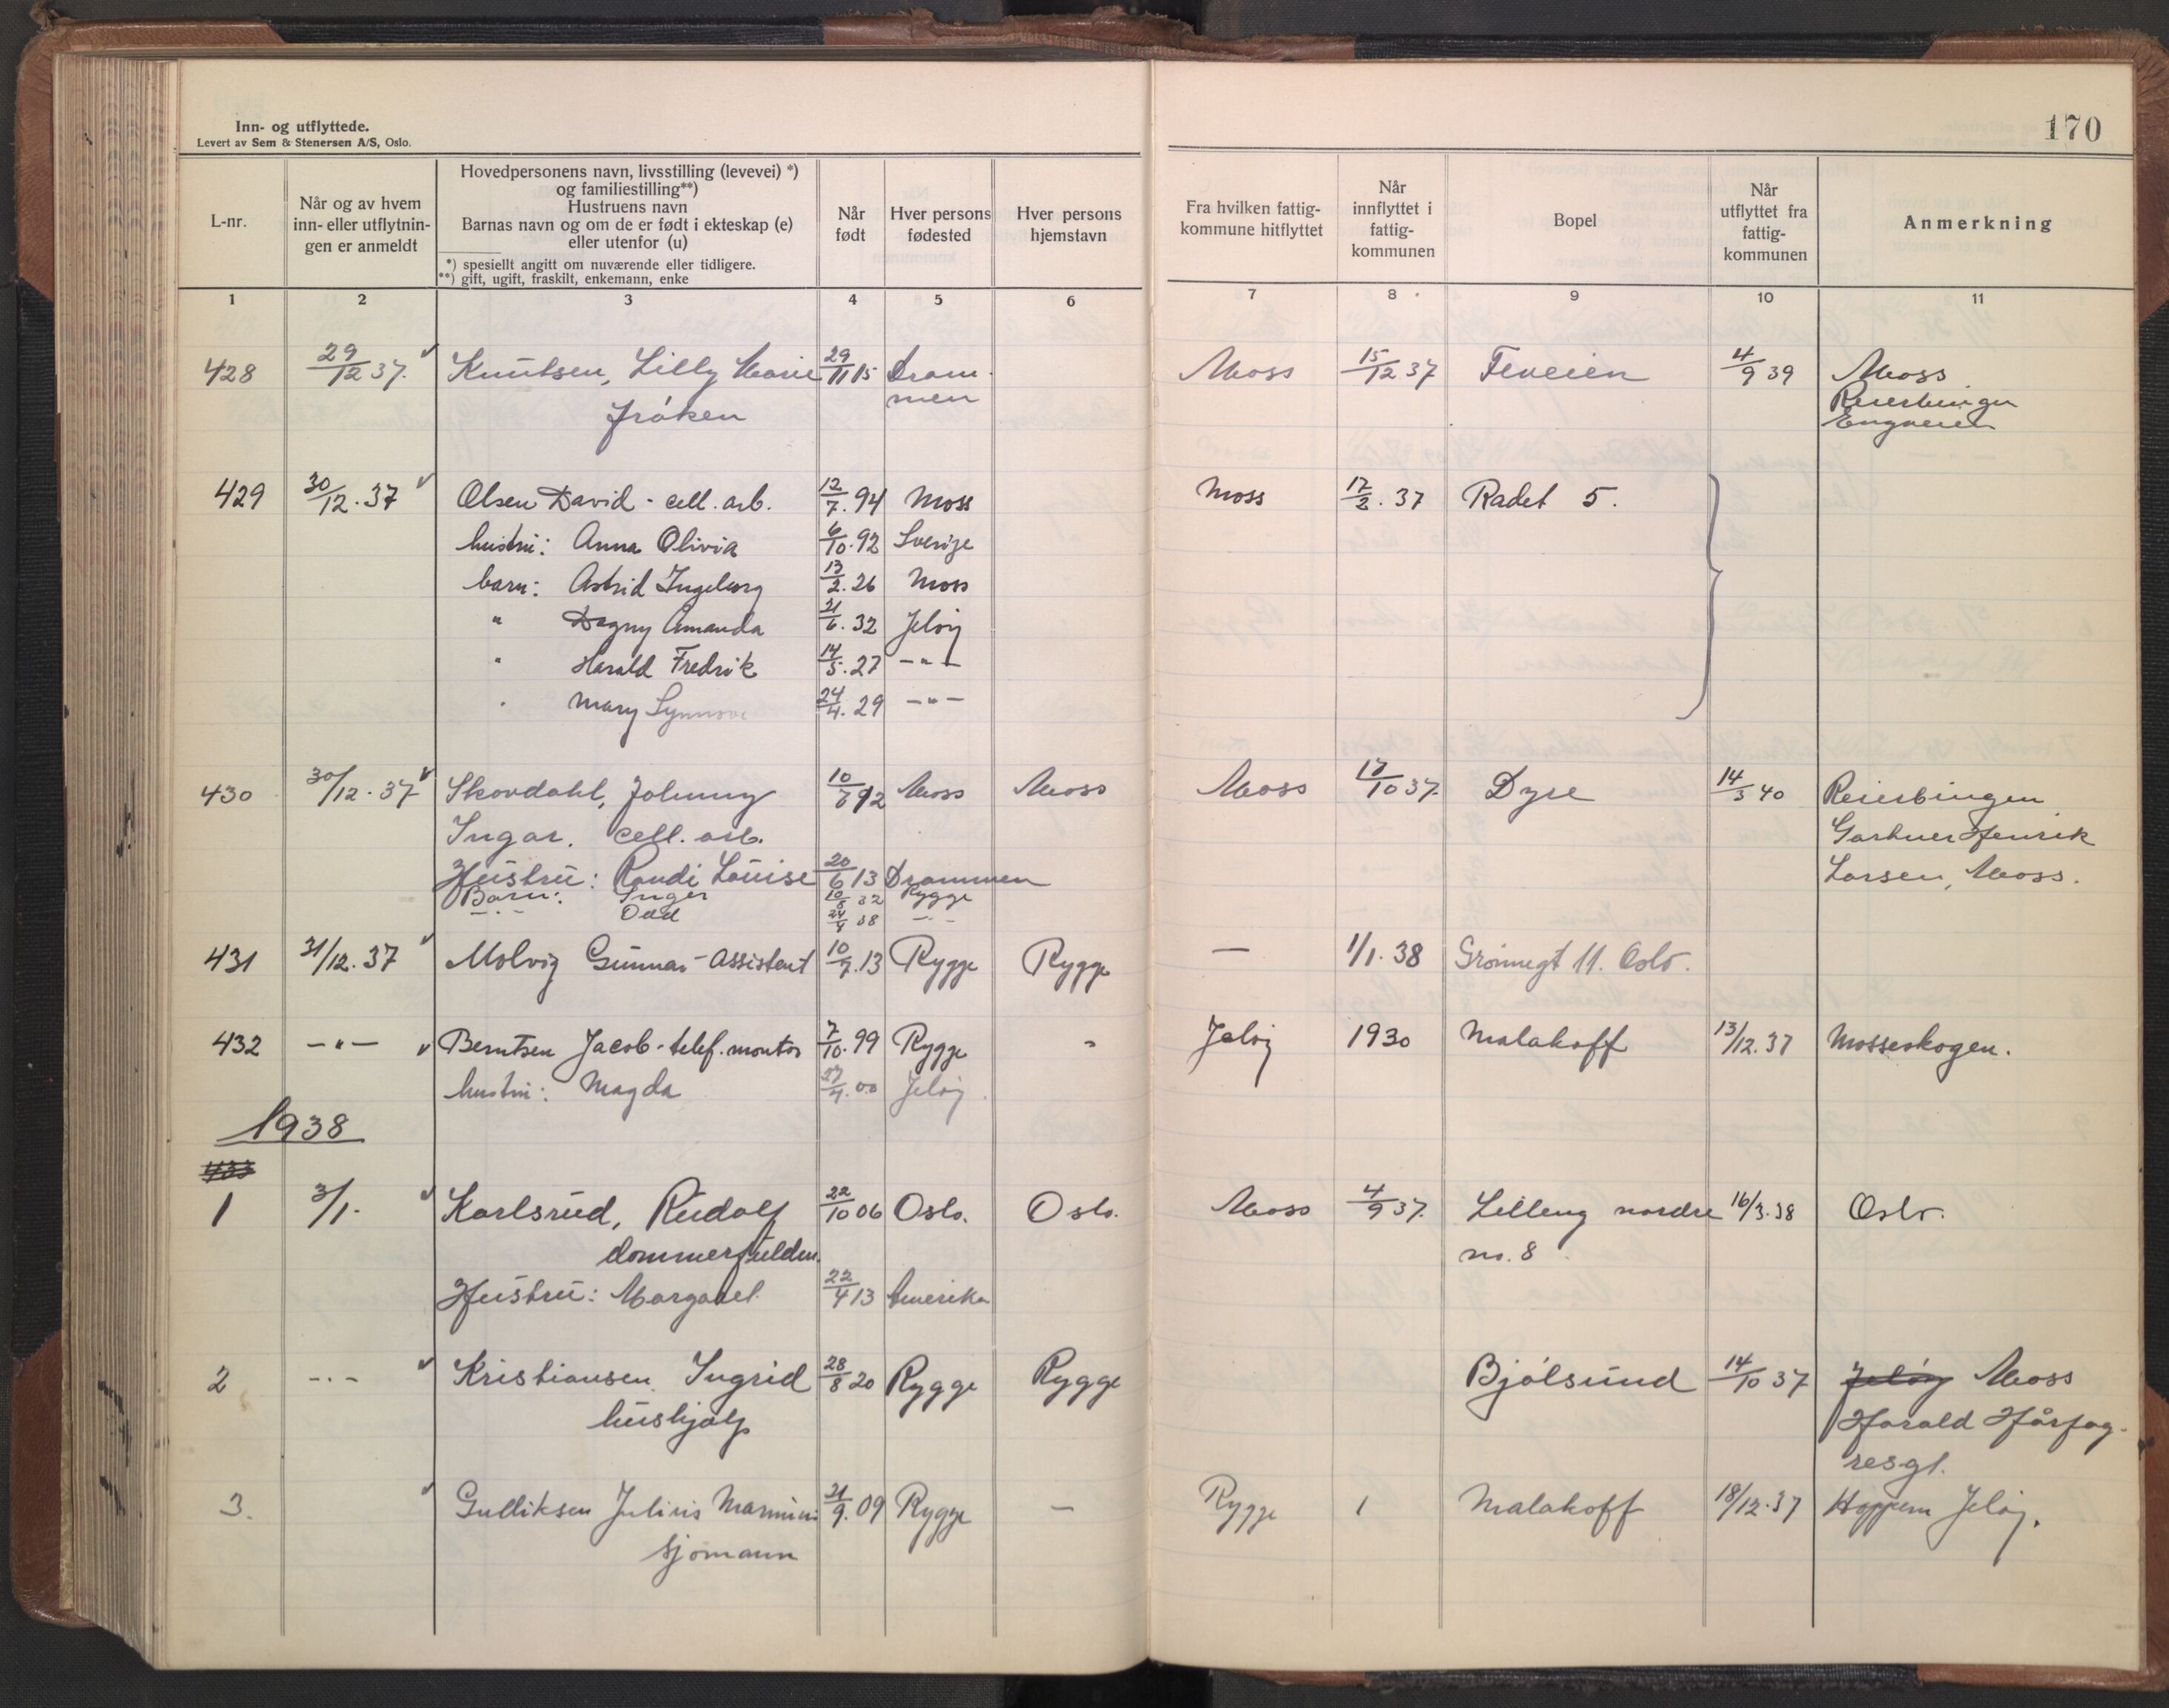 Inn- og utflyttede.
Levert av Sem & Stenersen A/S, Oslo.
170
L-nr.
Når og av hvem
inn- eller utflytnin-
gen er anmeldt
Hovedpersonens navn, livsstilling (levevei) *)
og familiestilling**)
Hustruens navn
Barnas navn og om de er født i ekteskap (e)
eller utenfor (u)
*) spesiellt angitt om nuværende eller tidligere.
**) gift, ugift, fraskilt, enkemann, enke
Når
født
Hver persons
fødested
Hver persons
hjemstavn
Fra hvilken fattig-
kommune hitflyttet
Når
innflyttet i
fattig-
kommunen
Bopel
Når
utflyttet fra
fattig-
kommunen
Anmerkning
1 2 3 4 5 6 7 8 9 10 11
428 29/12 37. Knutsen, Lilly Marie 29/11 15 Dram- Moss 15/12 37 Feveien 4/9 39 Moss
frøken men Engveien
429 30/12.37 Olsen David - cell. arb. 12/7.94 Moss Moss 17/2.37 Radet 5.
hustru: Anna Olivia 6/10.92 Sverige
barn: Astrid Ingeborg 13/2.26 Moss
" Dagny Amanda 21/6.32 Jeløy
" Harald Fredrik 14/5.27 -"-
" Mary Synnøve 24/4.29 -"-
430 30/12.37 Skovdahl, Johnny 92 Moss Moss Moss 17/10 37. Dyre 14/3 40 Reierbingen
Ingar. cell. arb. Gartner Henrik
Hustru: Randi Louise 20/6 13 Drammen Larsen, Moss.
Barn: Inger 10/8 32 Rygge
-"- Odd 38 -"-
431 31/12.37 Molvig Gunnar - Assistent 10/9.13 Rygge Rygge — 1/1.38 Grønnegt 11. Oslo.
432 -"- Berntsen Jacob - telef. montør 7/10.99 Rygge " Jeløy 1930 Malakoff 13/12.37 Mosseskogen.
hustru: Magda 27/4.00 Jeløy
1938
433
1 3/1. Karlsrud, Rudolf 22/10 06 Oslo. Oslo. Moss 4/9 37. Lilleng nordre 16/3.38 Oslo.
dommerfuldm. no. 8
Hustru: Margaret. 22/4 13 Amerika
2 -"- Kristiansen Ingrid 28/8 20 Rygge Rygge Bjølsund 14/10 37 Jeløy Moss
hushjelp Harald Hårfag-
resgt.
3. Gulliksen Julius Marinius 21/9.09 Rygge — Rygge 1 Malakoff 18/12.37 Hoppern Jeløy.
sjømann